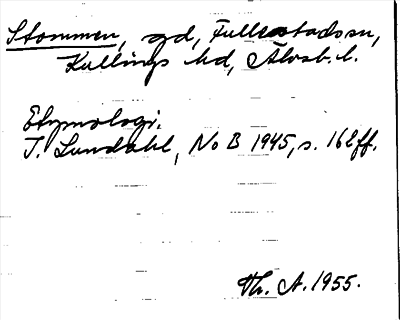 Stommen, gd, Fullestads sn,
Kullings hd, Älvsb. l.
Etymologi.
I. Lundahl, NoB 1945, s. 16 ff.
Th. A. 1955.